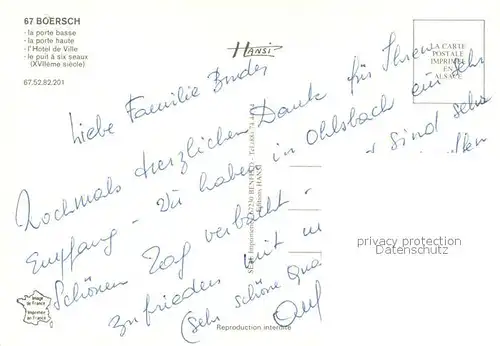 67 BOERSCH
- la porte basse
- la porte haute
- l'Hotel de Ville
- le puit à six seaux
(XVIIème siècle)
67.52.82.201
Hansi
LA CARTE
POSTALE
IMPRIMEE
EN
ALSACE
Liebe Familie Bruder
Nochmals herzlichen Dank für Ihren
Empfang - Wir haben in Ohlsbach ein sehr
Schönen Tag verbracht - sind sehr
zufrieden mit
(sehr schöne Qua
67230 BENFELD
Editions HANSI
privacy protection
Datenschutz
Image
de France
Imprimée
en France
Reproduction interdite